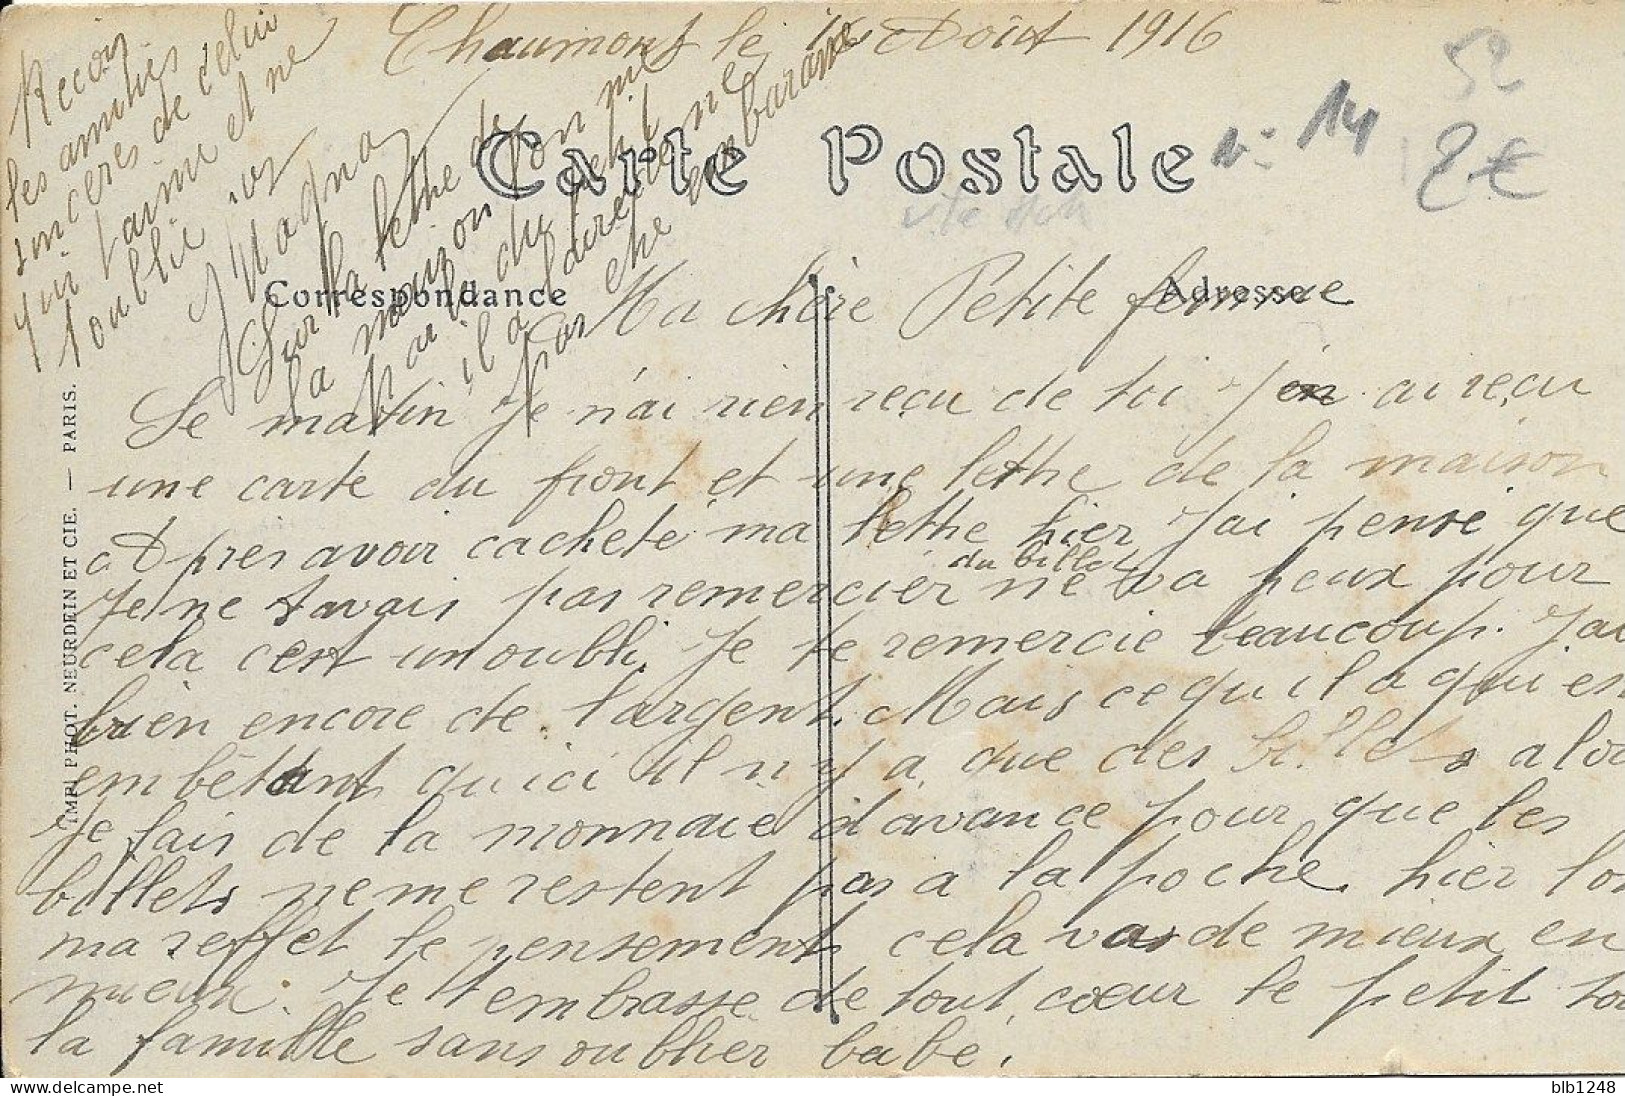 Chaumont le Août 1916
52
2€
n° 14
Carte Postale
Correspondance
Adresse
Ma chère Petite femme
Se matin Je n'ai rien reçu de toi J'en ai reçu
une carte du front et une lettre de la maison
Apres avoir cacheté ma lettre hier J'ai pensé que
du billet
Je ne t'avais pas remercier ne va peux pour
cela c'est un oubli. Je te remercie beaucoup. J'ai
bien encore de l'argent. Mais ce qu'il a qui es
embêtant qu'ici il n'y a que des billets alo
Je fais de la monnaie d'avance pour que les
billets ne me restent pas a la poche. hier l'o
ma reffet le pensement cela vas de mieux en
mieux. Je t'embrasse de tout cœur le petit to
la famille sans oublier bébé.
Recois
les amitiés
sinceres de celui
qui t'aime et ne
t'oublie pas
Sur la lettre de
la maison on me
parle du petit
il a
pas
IMP. PHOT. NEURDEIN ET CIE. — PARIS.
blb1248